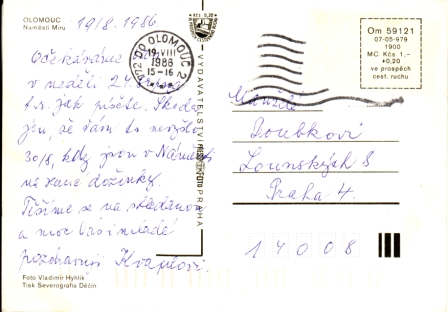 OLOMOUC
Náměstí Míru
19/8. 1986
Očekáváme
v neděli 24. srpna
t.r. jak píšete. Škoda
jen, že Vám to nevyšlo
30/8, kdy jsou v Náměšti
na Hané dožínky.
Těšíme se na shledanou
a moc Vás i mladé
pozdravují Kvapilovi.
Foto Vladimír Hyhlík
Tisk Severografia Děčín
VYDAVATELSTVÍ PRESSFOTO PRAHA
Kčs 0,20
772 00 OLOMOUC 2
19.VIII
1986
15-16
Om 59121
07-05-979
1900
MC Kčs 1,-
+0,20
ve prospěch
cest. ruchu
Manželé
Doubkovi
Lounských 8
Praha 4.
14008